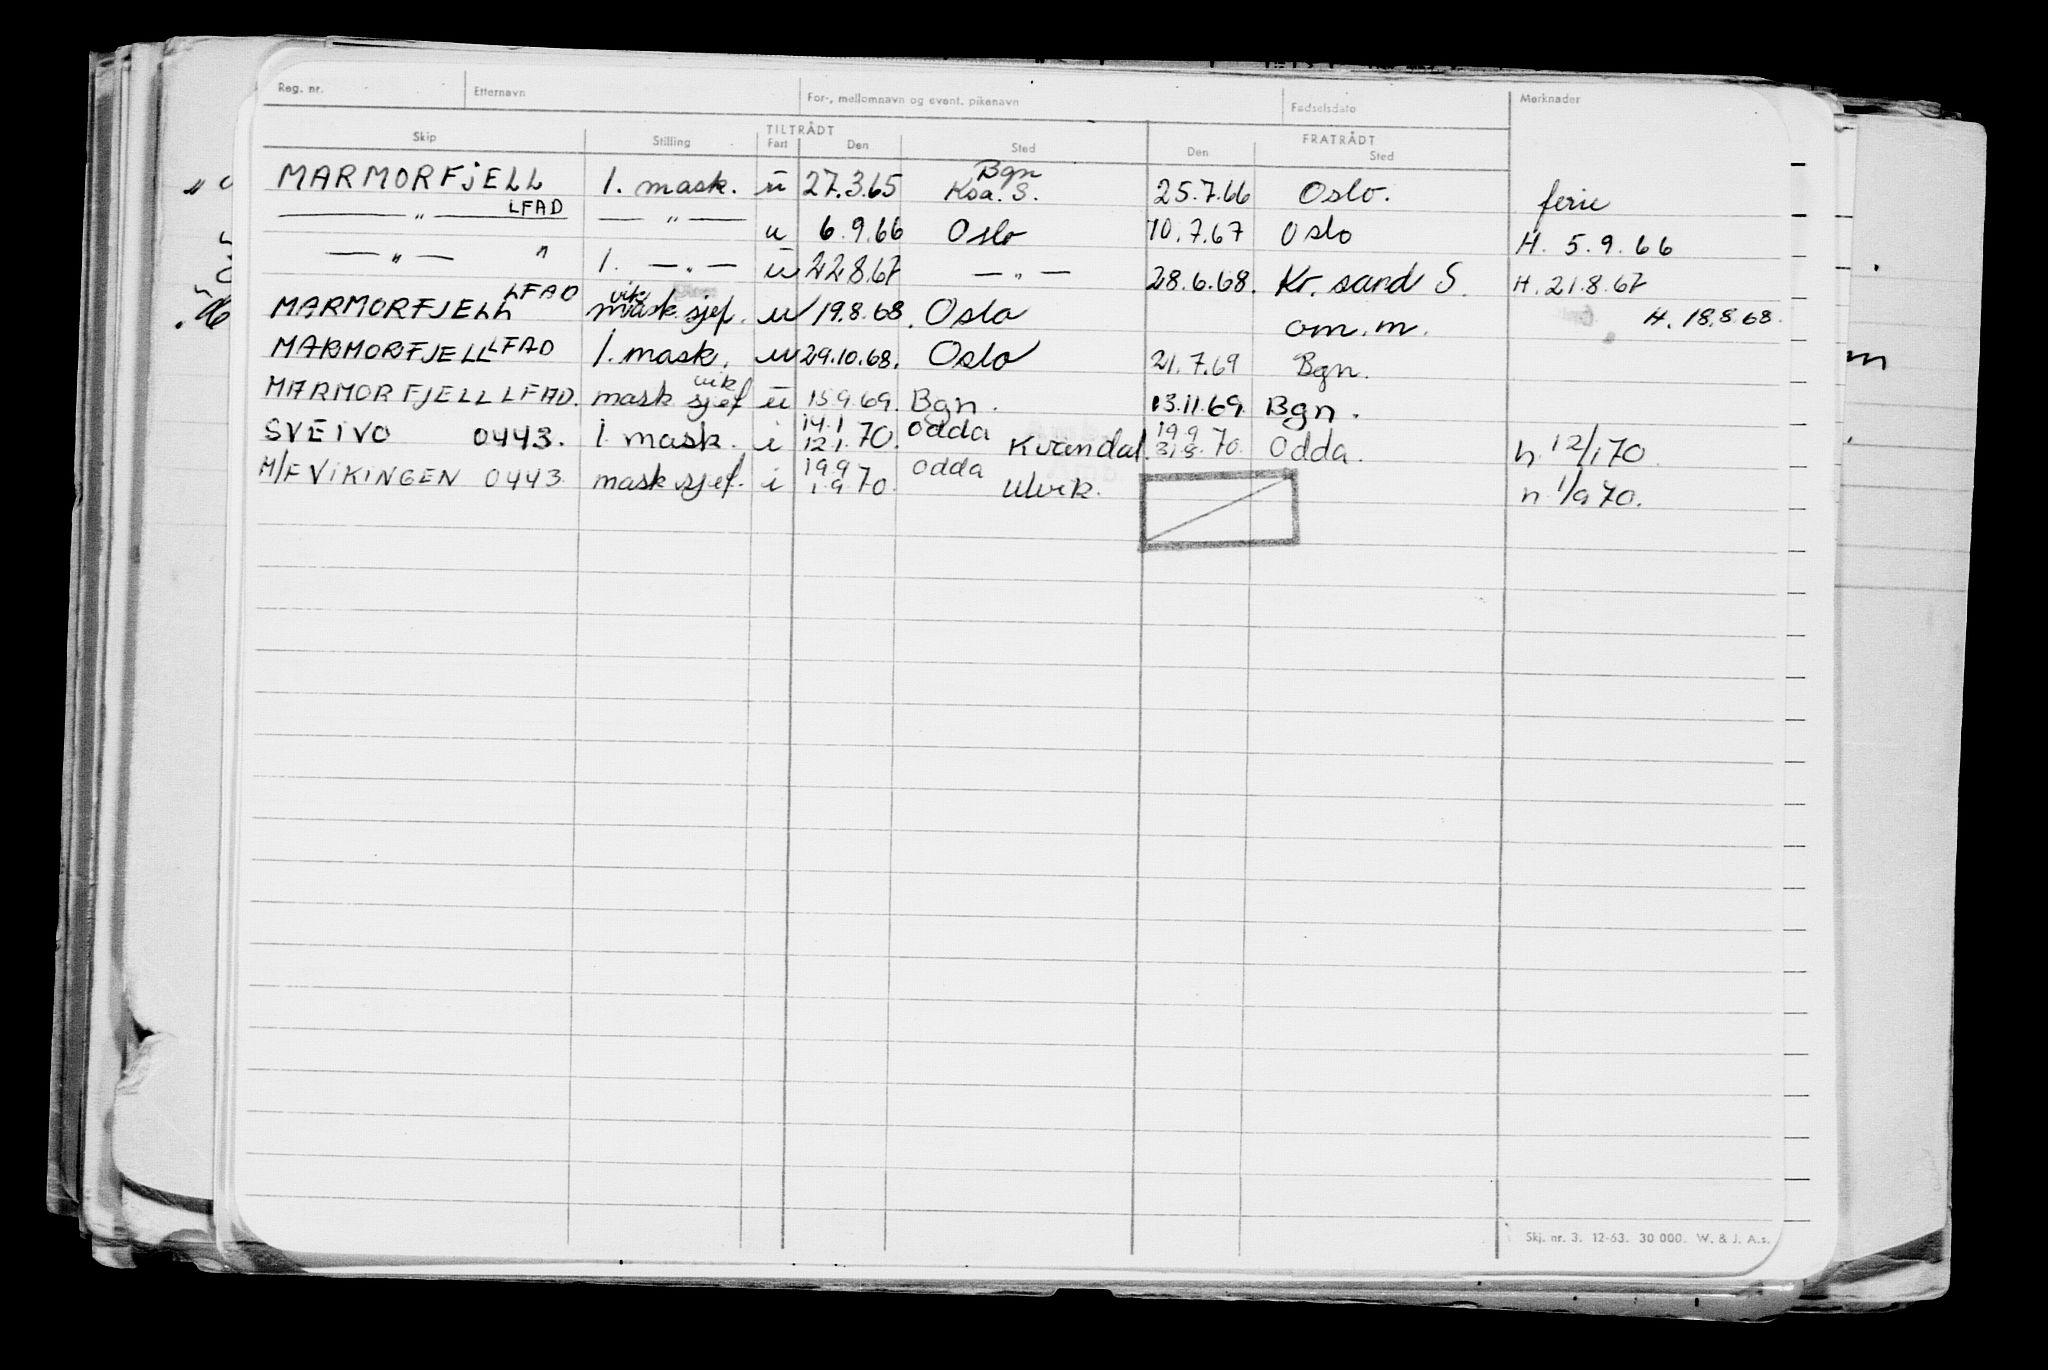 Reg. nr. Etternavn For-, mellomnavn og event. pikenavn Fødselsdato Merknader
TILTRÅDT FRATRÅDT
Skip Stilling Fart Den Sted Den Sted
MARMORFJELL 1. mask. u 27.3.65 Bgn Ksa. S. 25.7.66 Oslo. ferie
— " — LFAD — " — u 6.9.66 Oslo 10.7.67 Oslo H. 5.9.66
— " — " 1. — " — u 22.8.67 — " — 28.6.68. Kr. sand S. H. 21.8.67
MARMORFJELL LFAD vik mask.sjef. u 19.8.68. Oslo om. m. H. 18.8.68.
MARMORFJELL LFAD 1. mask. u 29.10.68. Oslo 21.7.69 Bgn.
MARMORFJELL LFAD. mask vik sjef u 15.9.69. Bgn. 13.11.69. Bgn.
SVEIVO 0443. 1. mask. i 14.1 12.1.70. Odda Kvandal. 19.9 31.8.70. Odda. h. 12/1 70.
M/F VIKINGEN 0443 mask sjef. i 19.9 1.9.70. Odda Ulvik. h 1/9 70.
Skj. nr. 3. 12-63. 30 000. W. & J. A.s.